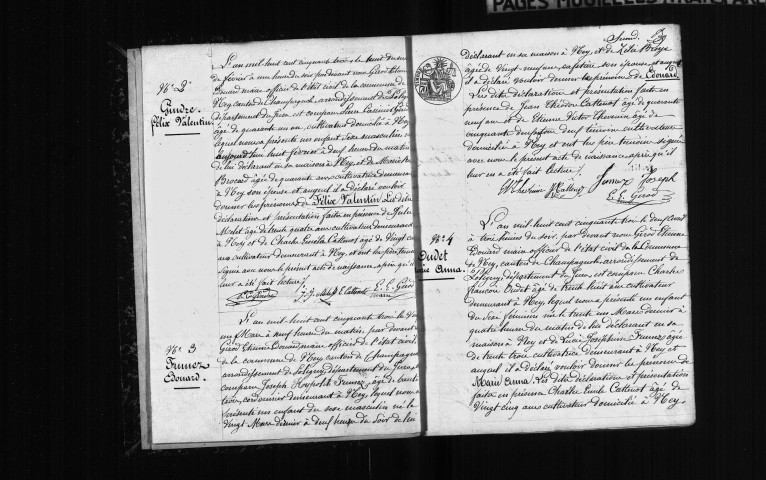 PAGES MOUILLEES
N° 2
Gindre
félix Valentin
L'an mil huit cent cinquante trois le huit du mois
de février à une heure du soir pardevant nous Girod Etienne
Edouard maire officier de l'état civil de la commune de
Ney canton de Champagnole, arrondissement de Poligny
département du Jura est comparu
âgé de quarante un an, cultivateur domicilié à Ney
lequel nous a présenté un enfant de sexe masculin né
aujourd'hui huit février à neuf heure du matin
de lui déclarant en sa maison à Ney, et de
Brocard âgée de quarante ans cultivatrice demeurant
à Ney son épouse et auquel il a déclaré vouloir
donner les prénoms de Félix Valentin Les dites
déclaration et présentation faites en présence de
âgé de trente quatre ans cultivateur demeurant
à Ney et de Charle Emile Cattenot âgé de vingt cinq
ans cultivateur demeurant à Ney, et ont les père et témoins
signé avec nous le présent acte de naissance après qu'il
leur a été fait lecture
Gindre E Cattenot E. E. Girod
maire
N° 3
Frumez
Edouard.
L'an mil huit cent cinquante trois le
Mars à neuf heures du matin par devant nous
Girod Etienne Edouard maire officier de l'état civil
de la commune de Ney canton de Champagnole
arrondissement de Poligny, département du Jura est
comparu Joseph Hypolite Frumez, âgé de trente
trois, cordonnier demeurant à Ney, lequel nous a
présenté un enfant du sexe masculin né le
vingt Mars dernier à neuf heures du soir de lui
déclarant en sa maison à Ney, et de
âgée de vingt neuf ans, son épouse et auquel
il a déclaré vouloir donner le prénom de Edouard.
Les dites déclaration et présentation faites en
présence de Jean Cattenot âgé de quarante
neuf ans et de Etienne Victor Thevenin âgé de
cinquante ans tous deux cultivateurs
domiciliés à Ney et ont les père témoins signé
avec nous le présent acte de naissance après qu'il
leur en a été fait lecture
Thevenin Cattenoz Frumez Joseph
E. E. Girod
N° 4
Oudet
Marie Anna.
L'an mil huit cent cinquante trois le deux Avril
à trois heures du soir, par devant nous Girod Etienne
Edouard maire officier de l'état civil de la Commune
de Ney, canton de Champagnole arrondissement de
Poligny, département du Jura, est comparu Charles
françois Oudet âgé de trente huit ans cultivateur
demeurant à Ney, lequel nous a présenté un enfant
du sexe féminin né le trente un Mars dernier à
quatre heures du matin de lui déclarant en sa
maison à Ney et de Lucie Josephine Frumez âgée
de trente trois cultivatrice demeurant à Ney et
auquel il a déclaré vouloir donner le prénom de
Marie Anna. Les dites déclaration et présentation
faites en présence Charles Emile Cattenot âgé de
vingt cinq ans cultivateur domicilié à Ney